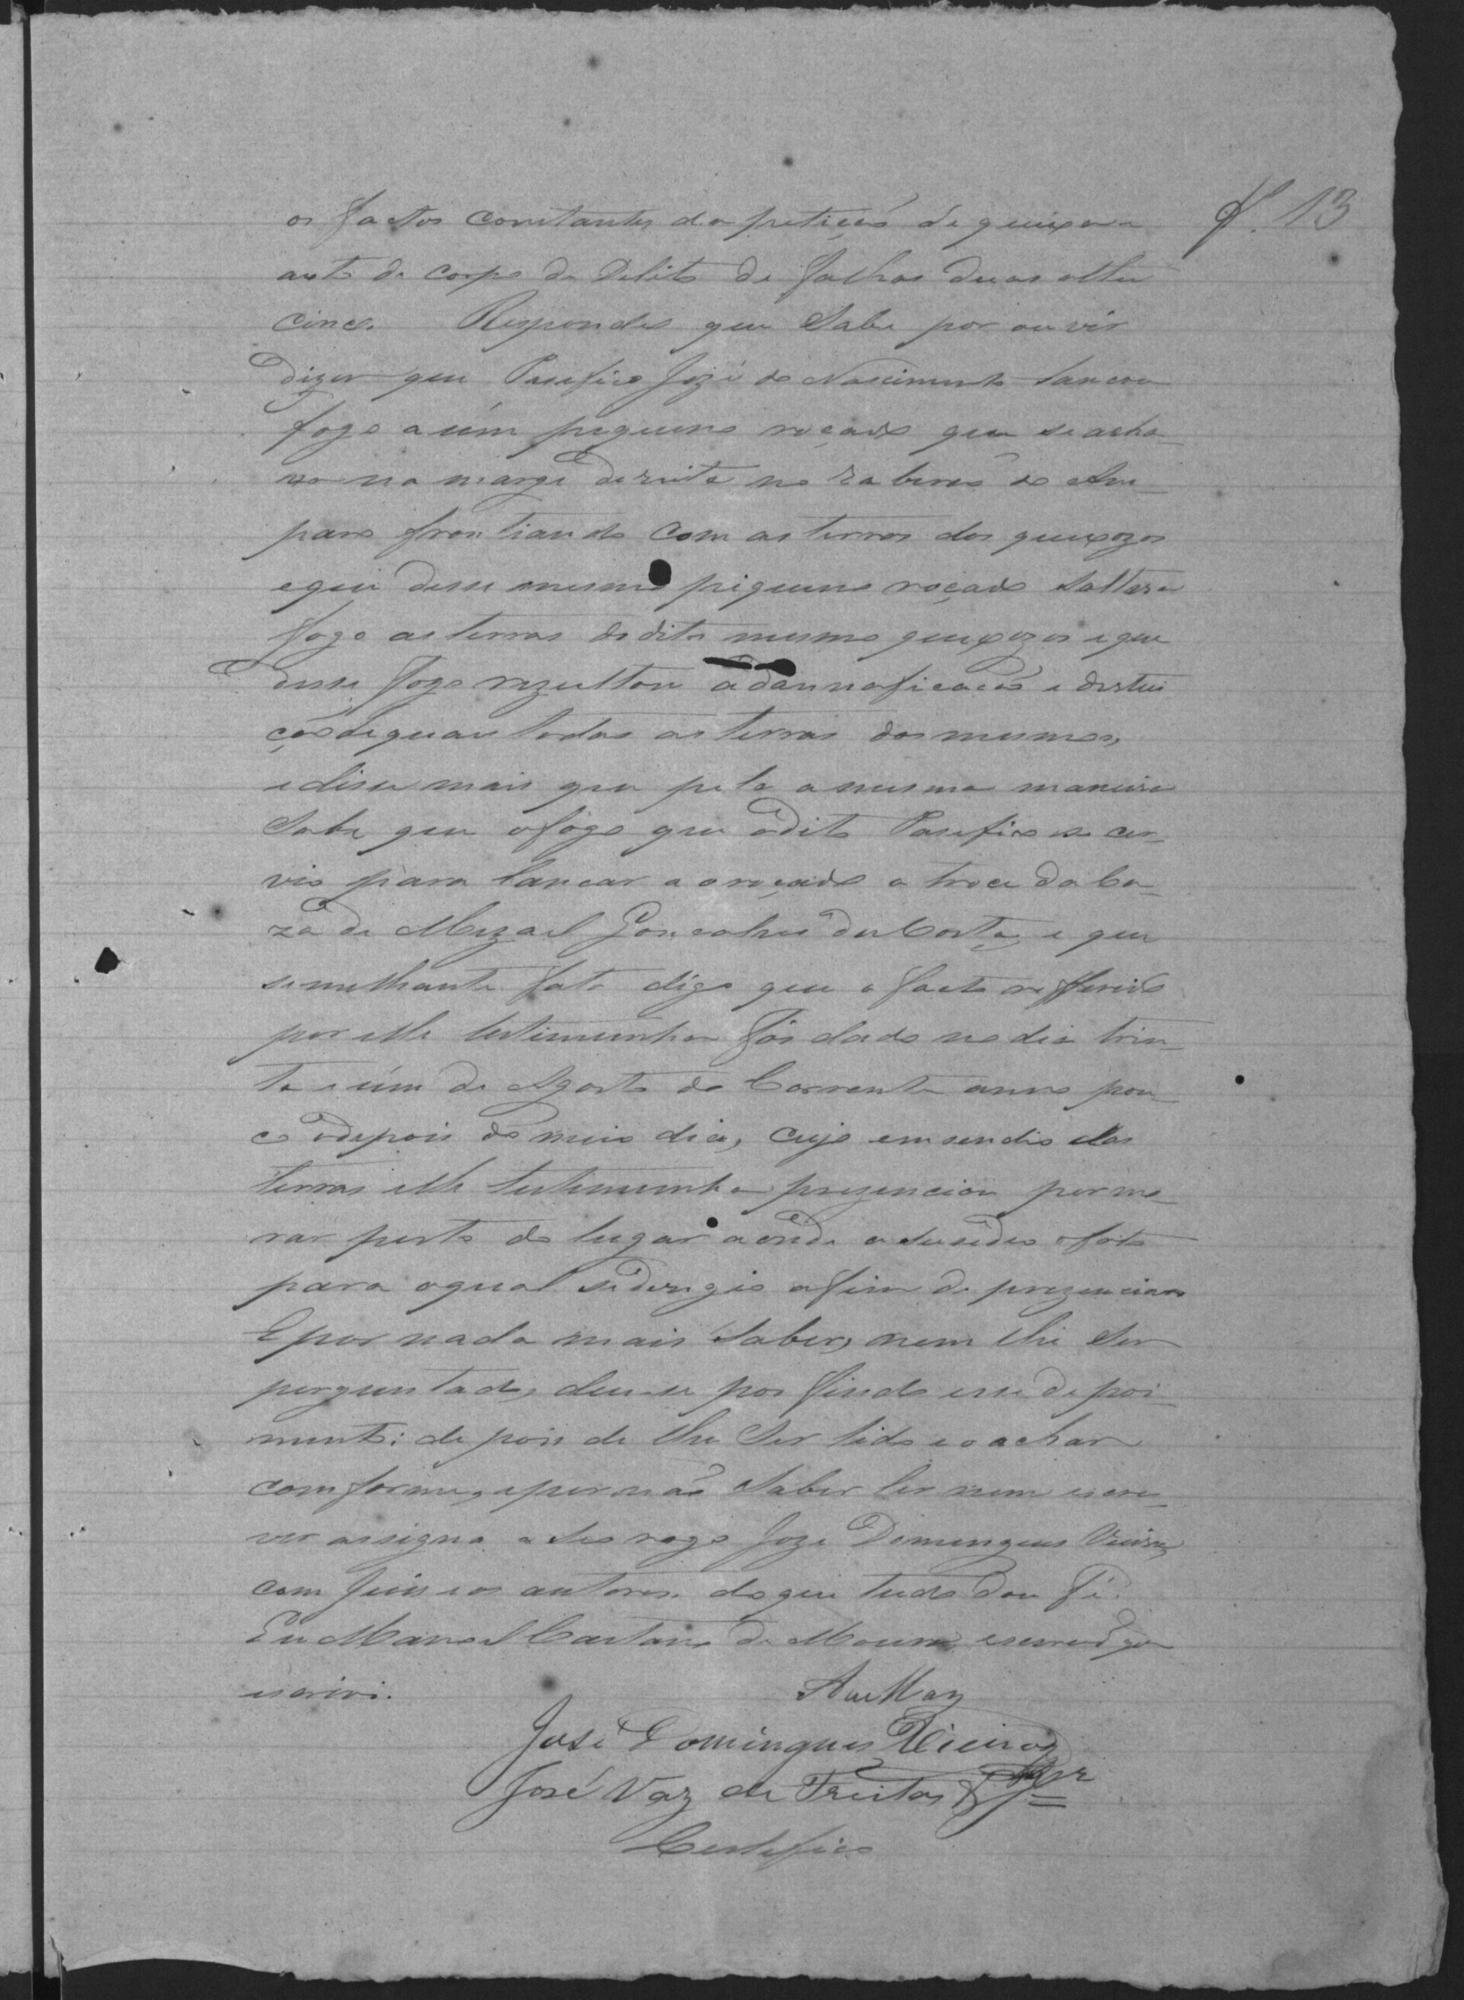 f. 13
os factos constantes da petiçaõ de queixa e
auto de corpo de Delito de folhas duas athe
cinco. Respondeo que Sabe por ouvir
dizer que Pasifico Jozé do Nascimento lancou
fogo a úm piqueno roçado que se acha-
va na marge dereita no Raberaõ do Am-
paro frontiando com as terras dos queixozos
e que desse mesmo piqueno roçado Saltara
fogo as terras do dito mesmo queixozos e que
desse fogo rezultou a dannaficacaõ e destrui
çaõ de quazi todas as terras dos mesmos,
e disse mais que pela a mesma maneira
Sabe que o fogo que o dito Pasifico se cer-
vio para lancar ao roçado o troce da Ca-
za de Mizael Goncalves da Costa, e que
semelhante fato digo que o facto refferido
por elle testimunha foi dado no dia trin-
ta e úm de Agosto do Corrente anno pou-
co depois do meio dia, cujo emsendio das
terras elle testimunha prezenciou por mo-
rar perto do lugar aonde a susedeo o fato
para o qual se deregio afim de prezenciar
E por nada mais Saber, nem lhe Ser
perguntado, deu-se por findo esse depoi-
mento: depois de lhe Ser lido e o achar
comforme, e por naõ Saber ler nem escre-
ver assigna a seo rogo Joze Domingues Vieira,
com Juis e os autores. do que tudo dou fé.
Eu Manoel Caetano de Moura, escrivaõ que
escrivi.
José Domingues Vieira
José Vaz de Freitas
Certefico